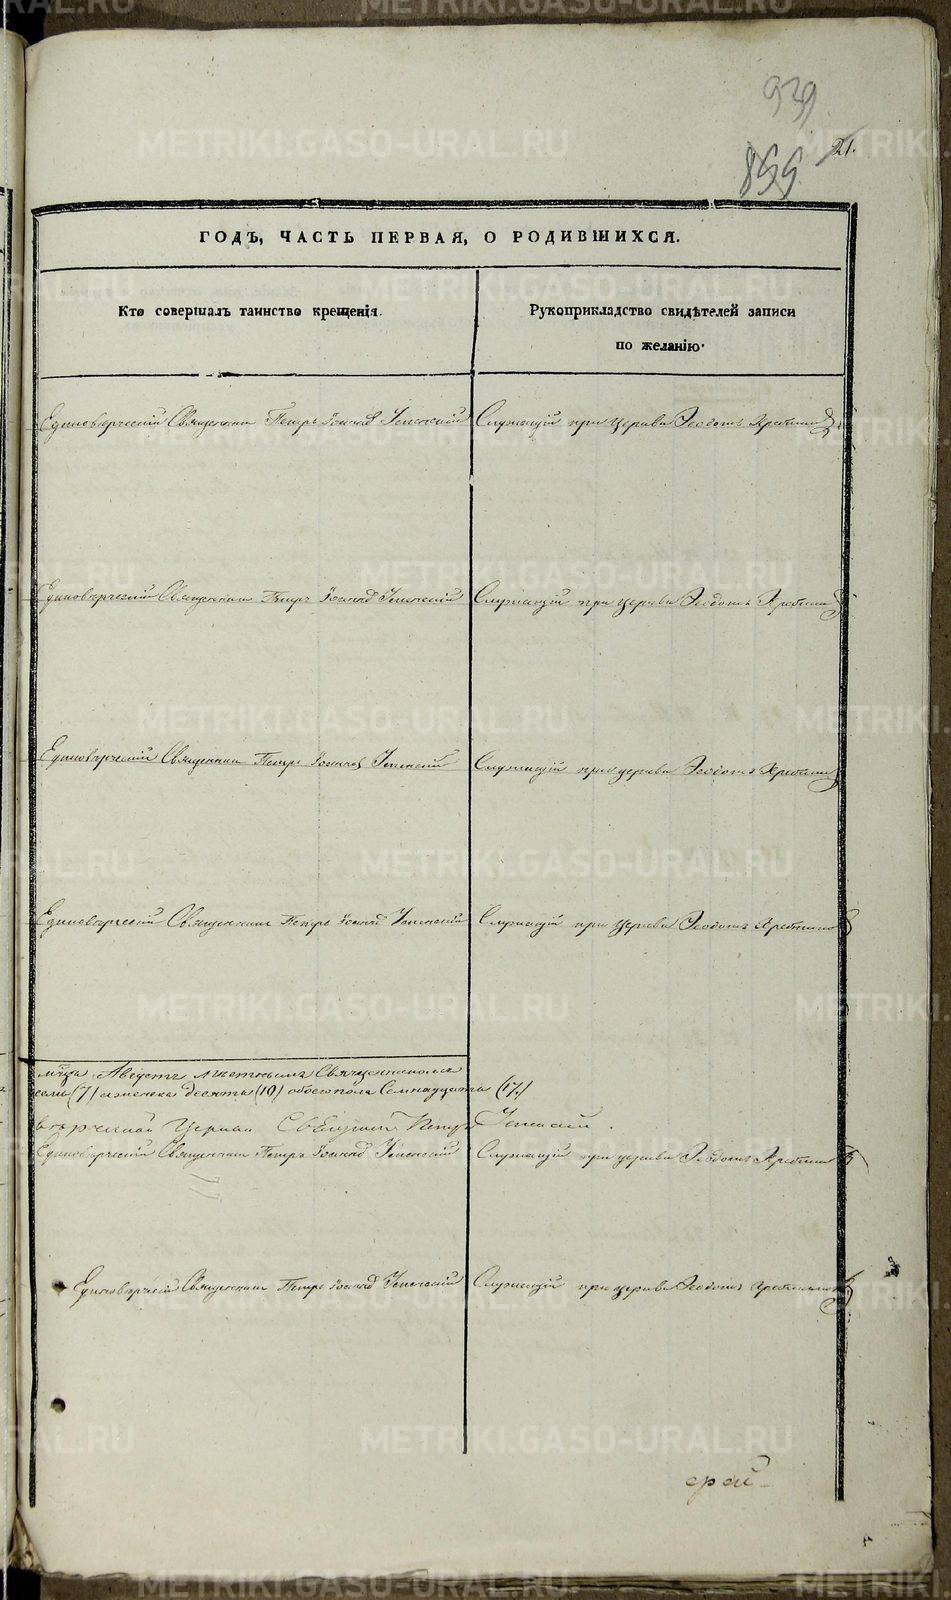 939
855
21.
ГОДЪ, ЧАСТЬ ПЕРВАЯ, О РОДИВШИХСЯ.
Кто совершалъ таинство крещенія.
Рукоприкладство свидѣтелей записи
по желанію.
Единовѣрческій Священник Петръ Іоаннов Успенскій
Служащій при церкви Ѳеодотъ
Единовѣрческій Священник Петръ Іоаннов Успенскій
Служащій при церкви Ѳеодотъ
Единовѣрческій Священник Петръ Іоаннов Успенскій
Служащій при церкви Ѳеодотъ
Единовѣрческій Священник Петръ Іоаннов Успенскій
Служащій при церкви Ѳеодотъ
Августъ
семь (7) женска десять (10) обоего пола Семнадцать (17)
Церкви Петръ Успенскій
Единовѣрческій Священник Петръ Іоаннов Успенскій
Служащій при церкви Ѳеодотъ
Единовѣрческій Священник Петръ Іоаннов Успенскій
Служащій при церкви Ѳеодотъ
METRIKI.GASO-URAL.RU